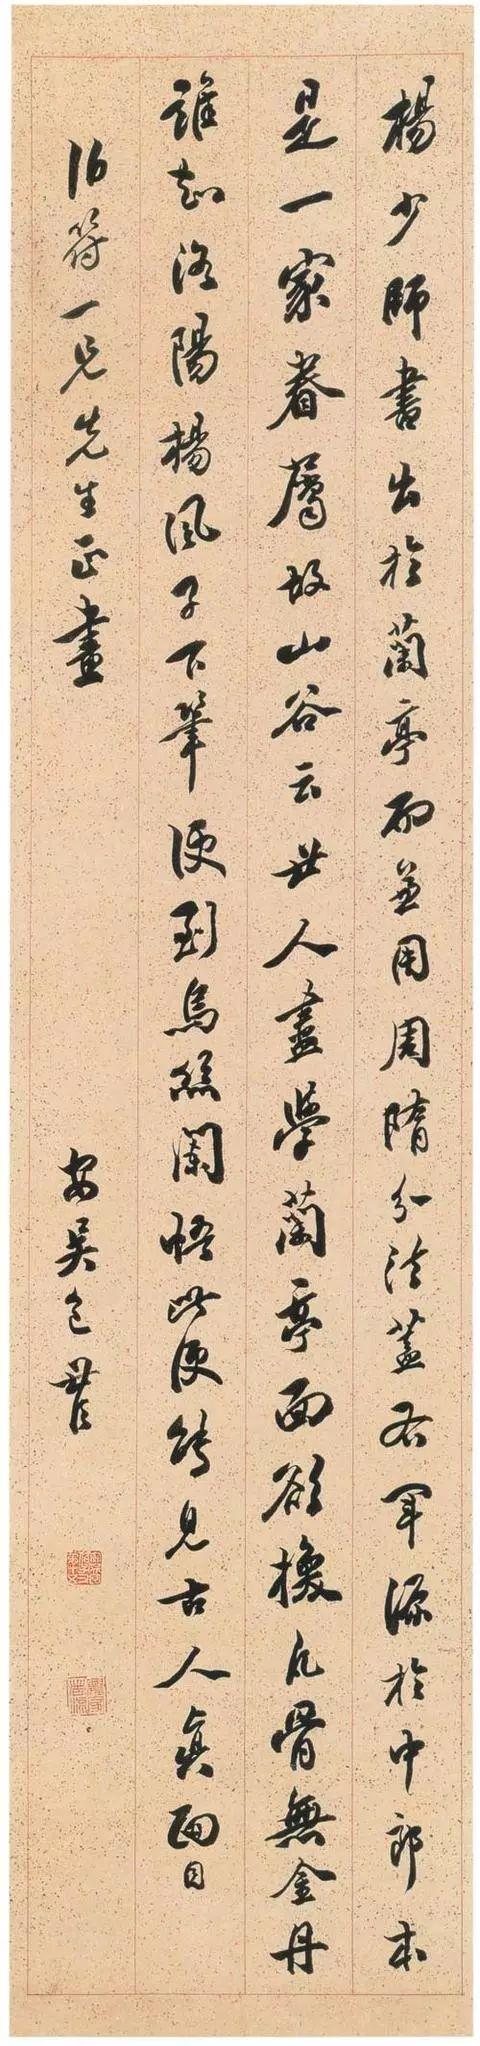 楊少師書出於蘭亭而並用周隋分法蓋右軍源於中郎本
是一家眷屬故山谷云世人盡學蘭亭面欲換凡骨無金丹
誰知洛陽楊風子下筆便到烏絲闌悟此便能見古人真面目
伯符一兄先生正畫
安吳包世臣